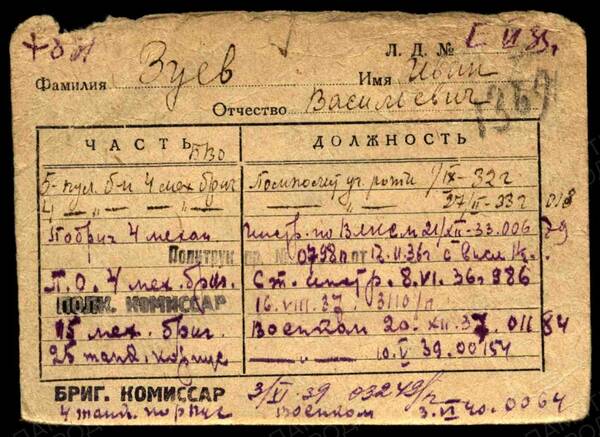 Л. Д. №
Фамилия Зуев Имя Иван
Отчество Васильевич
1367
ЧАСТЬ ДОЛЖНОСТЬ
БВО
5 пул. б-н 4 мех бриг Помполит уч. роты 1/IX-32 г
4 — „ — „ — — „ — 27/II-33 г 018
Инстр. по ВЛКСМ 21/XII-33.006
Политрук пр. № 0798 п от 17.II.36 г
П.О. 4 мех. бриг. Ст. инстр. 8.VI.36 г 986
ПОЛК. КОМИССАР 16.VIII.37 3110/п
15 мех. бриг. Военком 20.XII.37. 01184
25 танк. корпус — „ — 10.V 39.00154
БРИГ. КОМИССАР 3/XI.39 03249/п
4 танк. корпус Военком 3.VI 40.0064